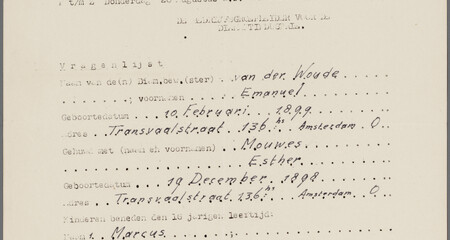 t/m Donderdag 20 Augustus
DE
Vragenlijst
Naam van de(n) Diam.bew.(ster) van der Woude
; voornamen Emanuel
Geboortedatum 10 Februari 1899
Adres Transvaalstraat 136 hs Amsterdam O.
Gehuwd met (naam en voornamen) Mouwes
Esther
Geboortedatum 19 Desember 1898
Adres Transvaalstraat 136 hs Amsterdam O
Kinderen beneden den 16 jarigen leeftijd:
1. Marcus